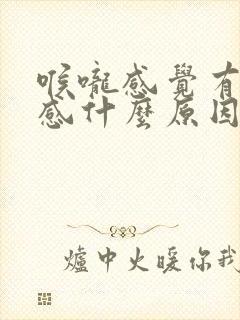 喉嚨感覺有
感什麼原因
爐中火暖你我